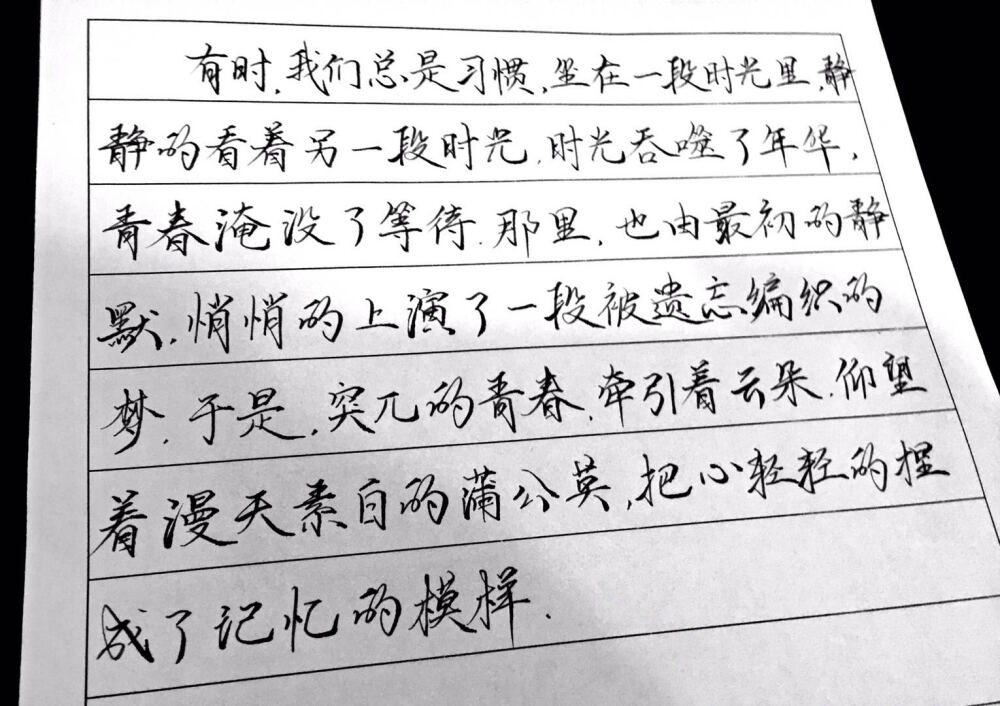 有时,我们总是习惯,坐在一段时光里,静
静的看着另一段时光.时光吞噬了年华,
青春淹没了等待.那里,也由最初的静
默,悄悄的上演了一段被遗忘编织的
梦.于是,突兀的青春,牵引着云朵.仰望
着漫天素白的蒲公英,把心轻轻的捏
成了记忆的模样.